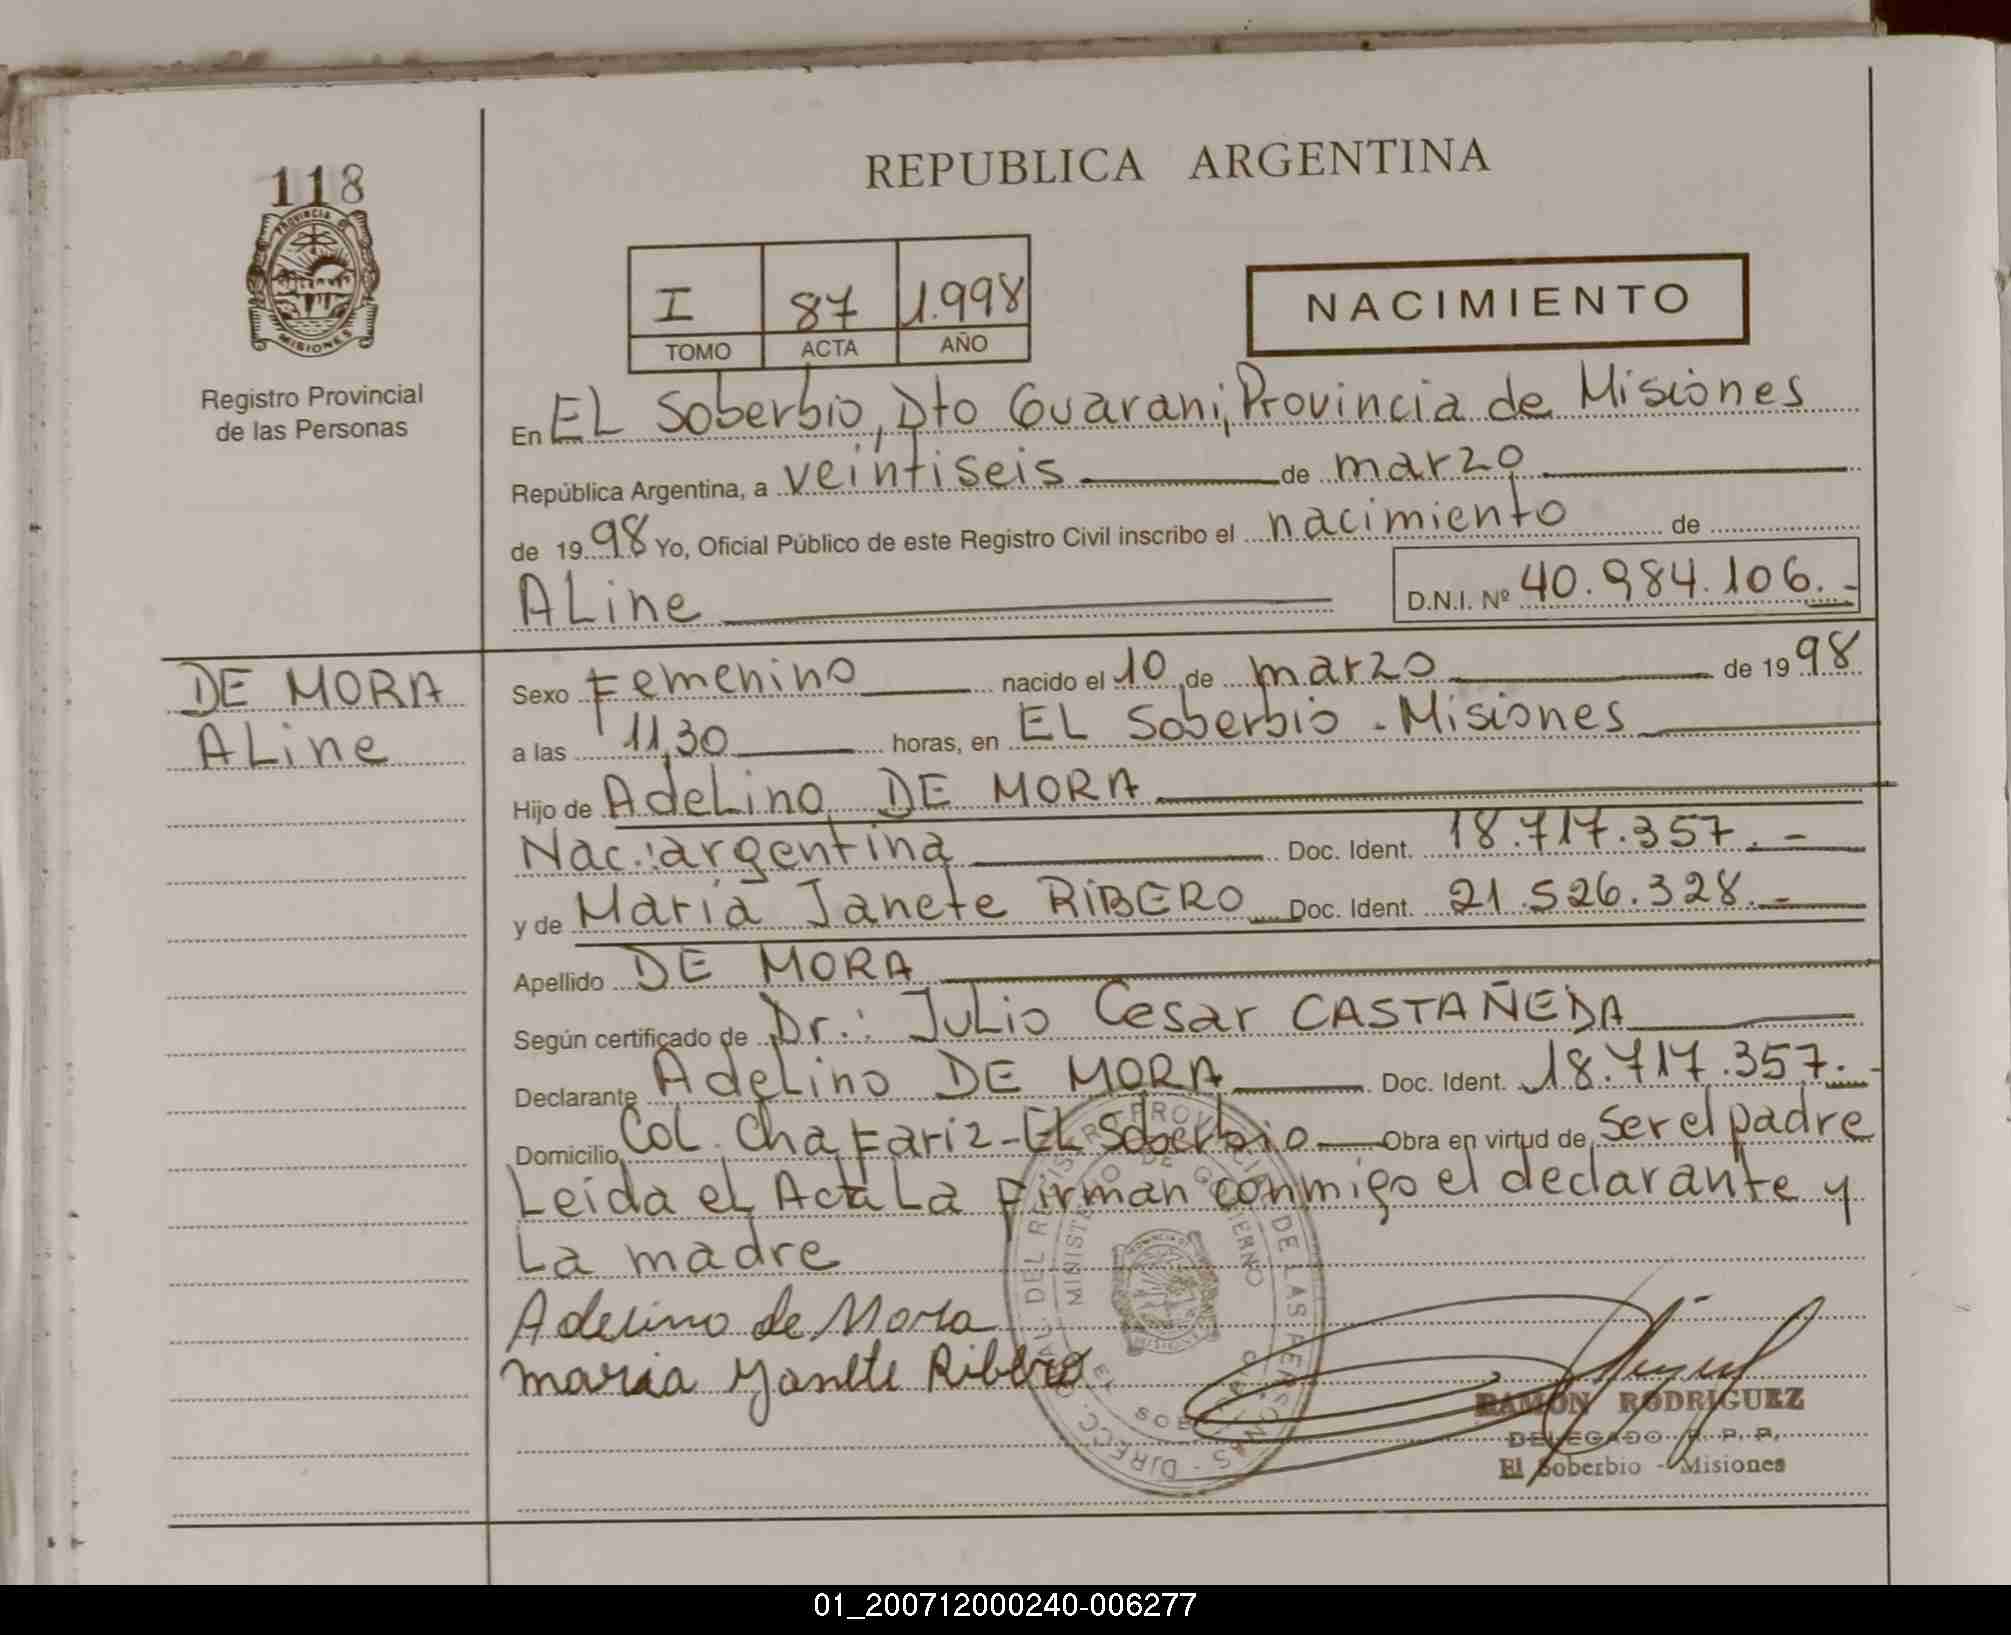 118
PROVINCIA DE
MISIONES
Registro Provincial
de las Personas
REPUBLICA ARGENTINA
I 87 1.998
TOMO ACTA AÑO
NACIMIENTO
En EL Soberbio, Dto Guarani, Provincia de Misiones
República Argentina, a veintiseis de marzo
de 19 98 Yo, Oficial Público de este Registro Civil inscribo el nacimiento de
ALine D.N.I. Nº 40.984.106.-
DE MORA
ALine
Sexo Femenino nacido el 10 de marzo de 19 98
a las 11,30 horas, en EL Soberbio - Misiones
Hijo de AdeLino DE MORA
Nac.: argentina Doc. Ident. 18.717.357.-
y de Maria Janete RIBERO Doc. Ident. 21.526.328.-
Apellido DE MORA
Según certificado de Dr.: JuLio Cesar CASTAÑEDA
Declarante AdeLino DE MORA Doc. Ident. 18.717.357.-
Domicilio CoL. Chafariz - EL Soberbio Obra en virtud de ser el padre
Leida eL Acta La firman conmigo el declarante y
La madre
Adelino de Mora
maria Janete Ribero
MINISTERIO DE GOBIERNO
RAMON RODRIGUEZ
DELEGADO R. P. P.
El Soberbio - Misiones
01_200712000240-006277